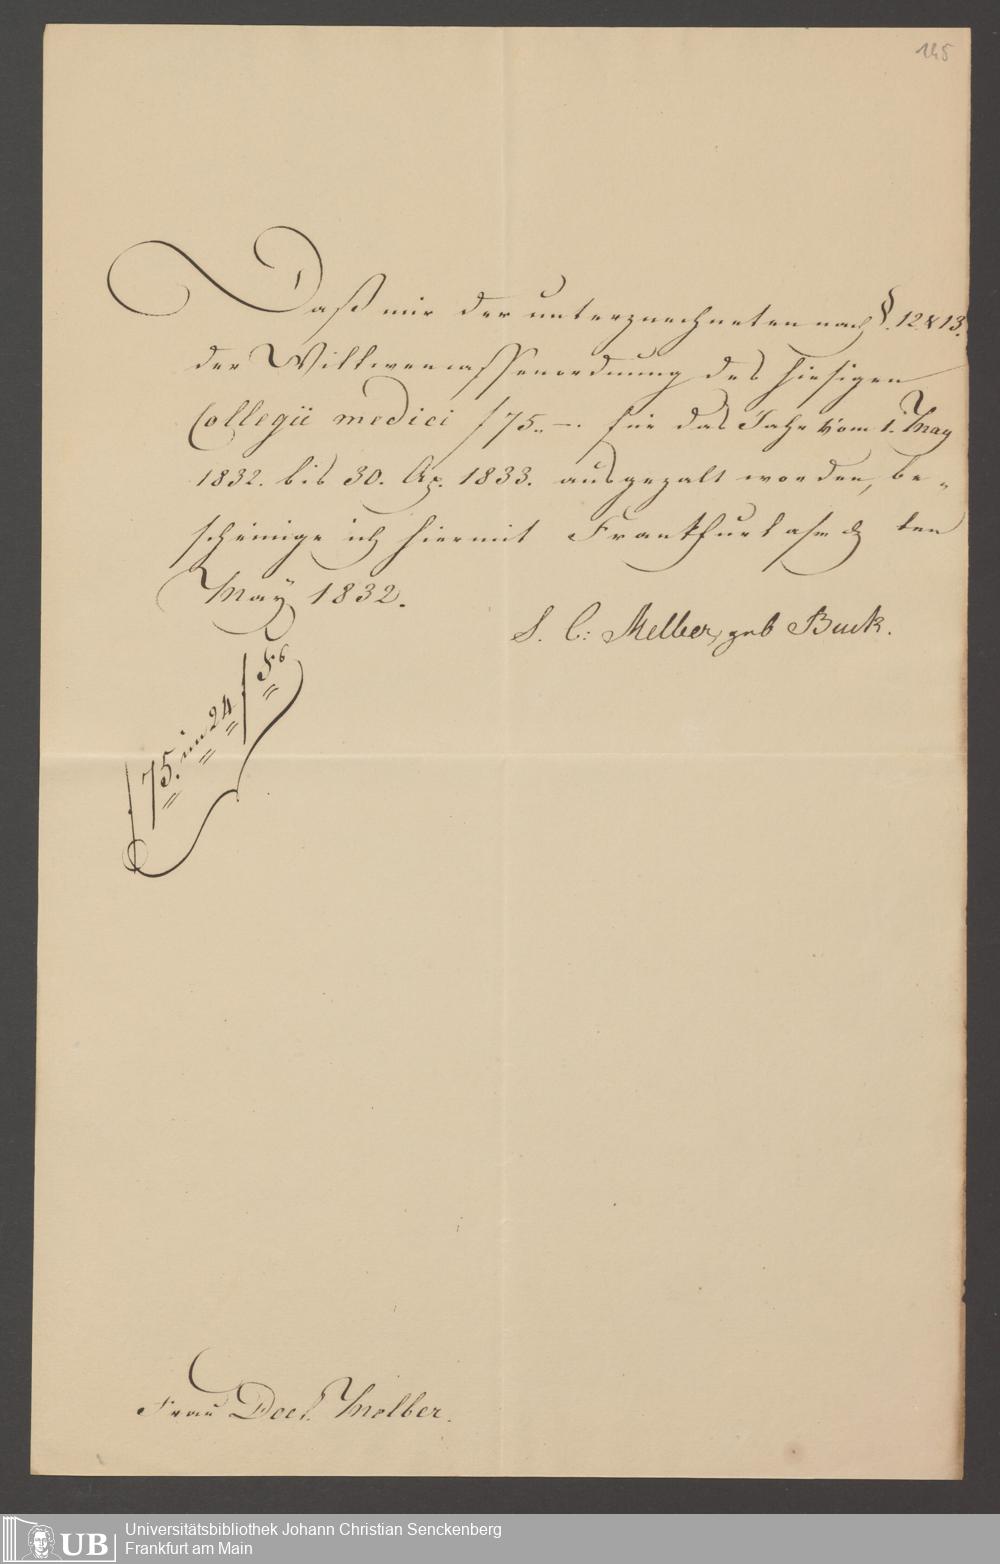 145
Daß mir der unterzeichneten nach §. 12 & 13.
der Wittwencassenordnung des hiesigen
Collegii medici f 75.. —. für das Jahr vom 1. May
1832. bis 30. Ap. 1833. ausgezalt worden, be-
scheinige ich hiermit Frankfurt a/m den
May 1832.
S. C: Melber, geb Buck.
f 75. im 24 f
Frau Doct. Melber.
UB
Universitätsbibliothek Johann Christian Senckenberg
Frankfurt am Main